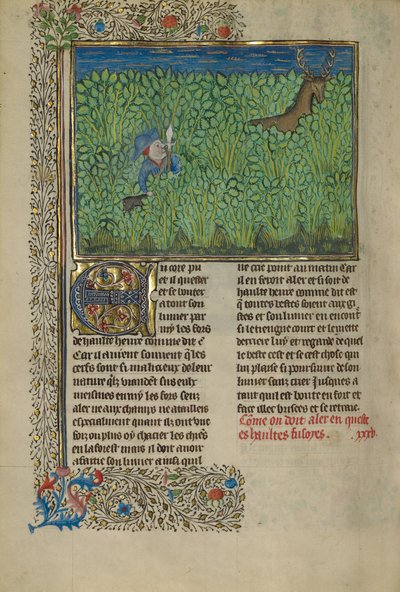 Encore puet
et il quester
et se bouter
atout son
limier par
my les fors
de haulte heure comme dit e
Car il avient souvent q̃ les
cerfs sont si malicieux de leur
nature q̃lz viandẽt sus eulx
mesmes en my les fors sens
aler ne aux champs ne a tailleis
especialment quant ilz ont
son ou plus oy chacier les chiẽs
en la forest mais il doit avoir
son limier ainsi quil
ne crie point au matin Car
il en fevoit aler et si soit de
haulte heure comme dit est
q̃ toutes bestes soient aux gi
stes et son limier en encont
si le tiengne court et le mette
derriere luy et regarde de quel
le beste cest et se cest chose qui
lui plaise si poursuive de son
limier sanz crier Jusques a
tant quil est boute en fort et
face illec brisees et se retraie.
Cõme on doit aler en queste
es haultes fustoyes. .xxxv.